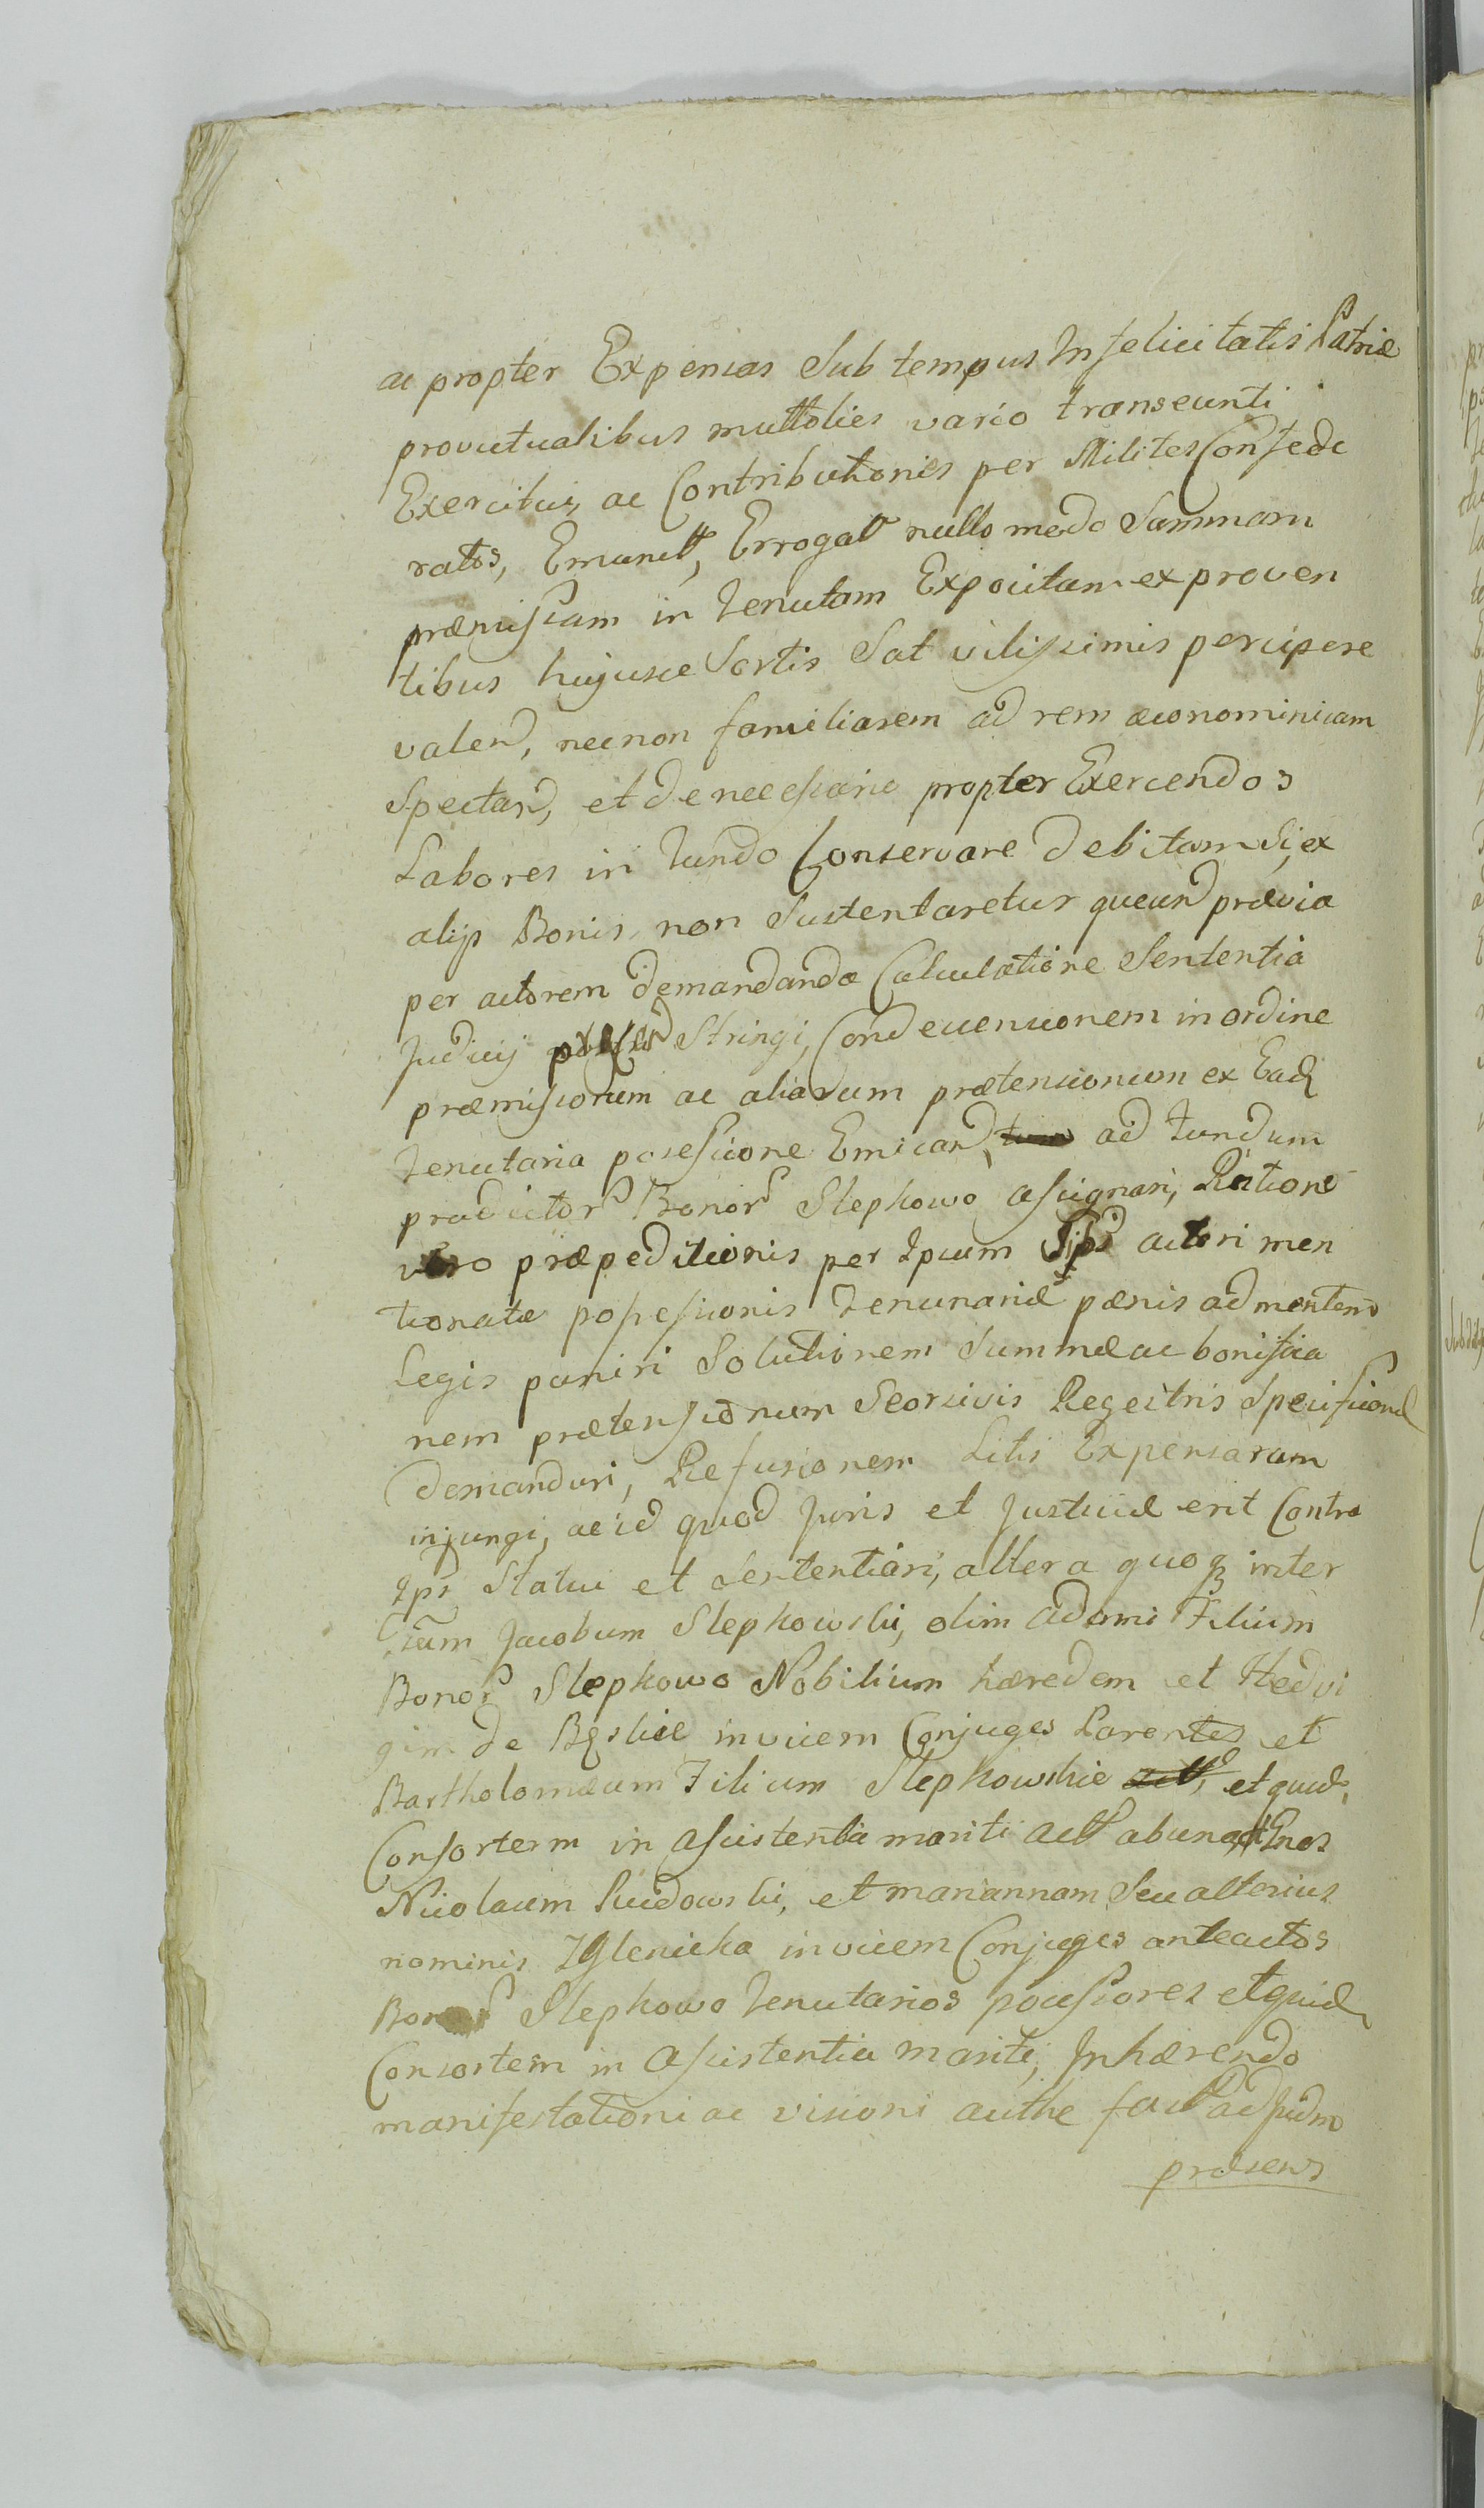 ac propter Expensas Sub tempus Infelicitatis Patriæ
provictualibus multoties vario transeunti
Exercitui, ac Contributionis per Milites Confede
ratos, Emunctt, Errogatt nullo modo Summam
præmissam in tenutam Expositam ex proven
tibus hujusce Sortis Sat vilissimis percipere
valend, necnon familiarem ad rem œconominicam
Spectand, et de necessario propter Exercendos
Labores in fundo Conservare debitam Si, ex
alijs Bonis, non Sustentaretur prævia
per actorem demandanda Calculatione Sententia
Judicij Stringi, Condescensionem in ordine
præmissorum ac aliarum prætensionum ex Ead
tenutaria posessione Emicand, ad fundum
prædictor Bonor Slepkowo assignari, Ratione
vero præpeditionis per Ipsum actori men
tionatæ possessionis Tenutariæ pænis ad mentem
Legis puniri Solutionem Summæ ac bonifica
nem prætensionum Seorsivis Regestris Specificand
demandari, Refusionem Litis Expensarum
injungi, ac id quod Juris et Justitiæ erit Contra
Ips Statui et Sententiari, altera quoq inter
Jacobum Slepkowski, olim adami Filium
Bonor Slepkowo Nobilium hæredem et Hedvi
gim de invicem Conjuges Parentes et
Bartholomæum Filium Slepkowskie et quid
Consortem in assistentia mariti actt abuna, et Gnos
Nicolaum et mariannam Seu alterius
nominis invicem Conjuges anteactos
Bonor Slepkowo tenutarios possessores et quid
Consortem in assistentia mariti, Inhærendo
manifestationi ac visioni authe factt ad Judm
præsens